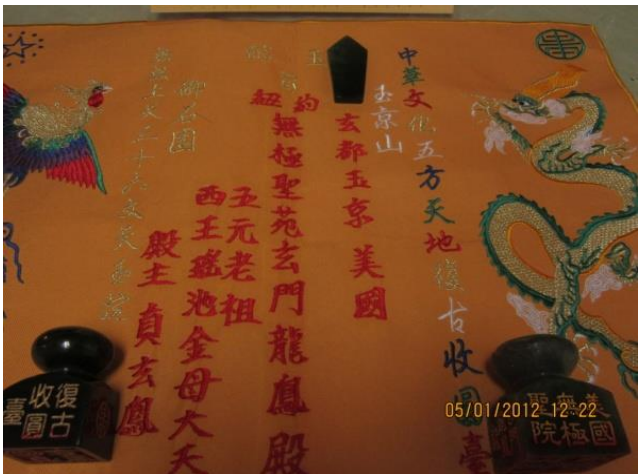 中華文化五方天地復古收圓臺
玉京山
玄都玉京 美國
紐約
無極聖苑玄門龍鳳殿
五元老祖
西王瑤池金母大天
殿主 貞玄鳳
美國
無極
聖院
復古
收圓
臺
05/01/2012 12:22